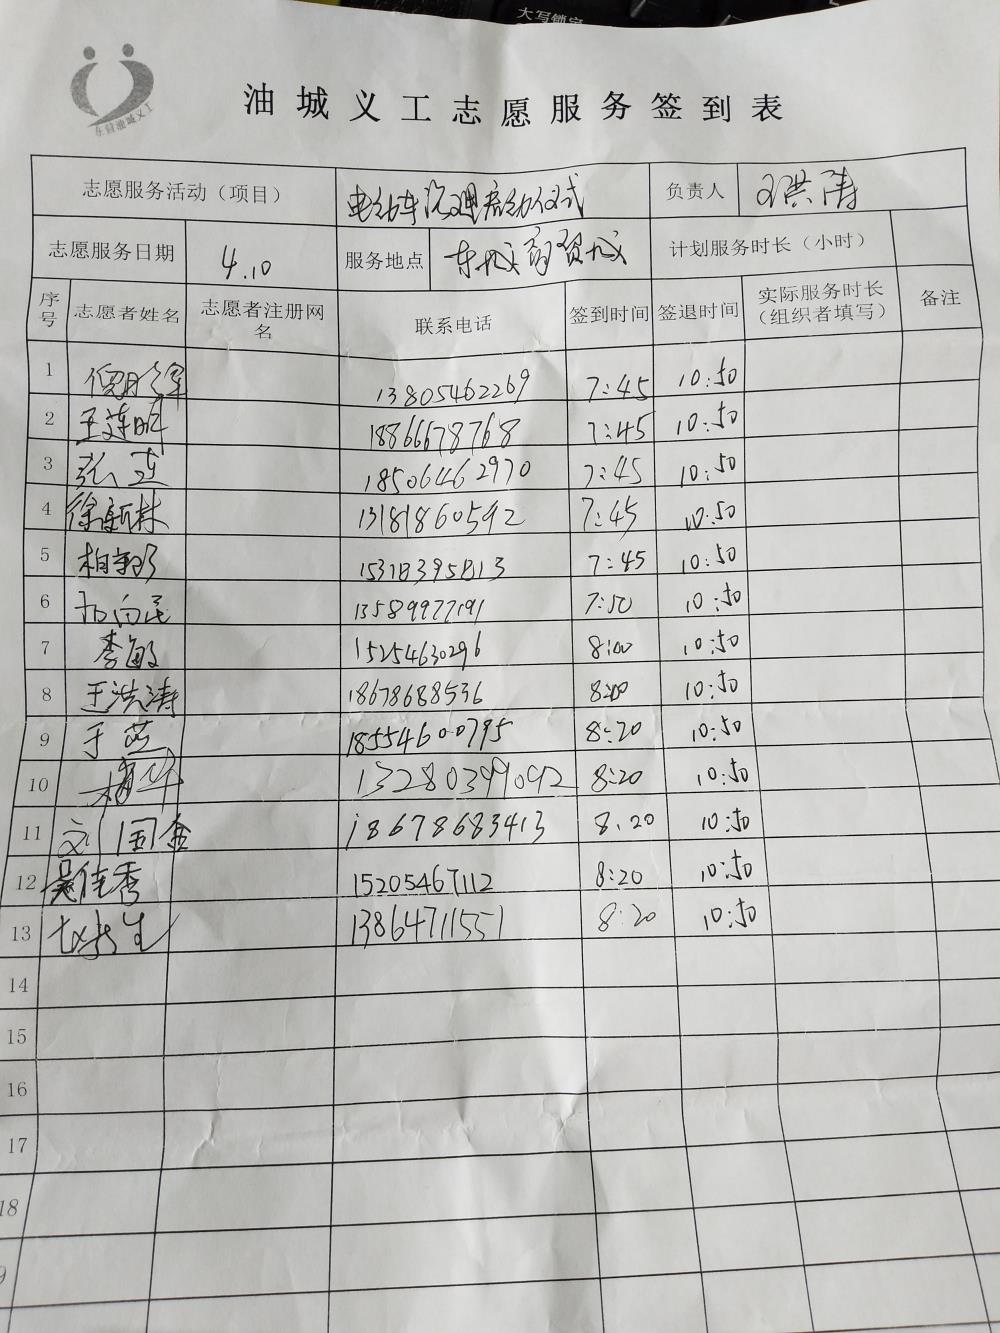 大写锁定
东营油城义工
油城义工志愿服务签到表
志愿服务活动（项目） 电动车治理启动仪式 负责人 王洪涛
志愿服务日期 4.10 服务地点 东城商贸城 计划服务时长（小时）
序号 志愿者姓名 志愿者注册网名 联系电话 签到时间 签退时间 实际服务时长（组织者填写） 备注
1 13805462269 7:45 10:50
2 王莲明 18866678768 7:45 10:50
3 张莲 18506462970 7:45 10:50
4 徐新林 13181860592 7:45 10:50
5 15318395813 7:45 10:50
6 13589977191 7:50 10:50
7 李敏 15254630296 8:00 10:50
8 王洪涛 18678688536 8:00 10:50
9 于 18554600795 8:20 10:50
10 13280399092 8:20 10:50
11 刘国金 18678683413 8.20 10:50
12 吴佳秀 15205467112 8:20 10:50
13 13864711551 8:20 10:50
14
15
16
17
18
9